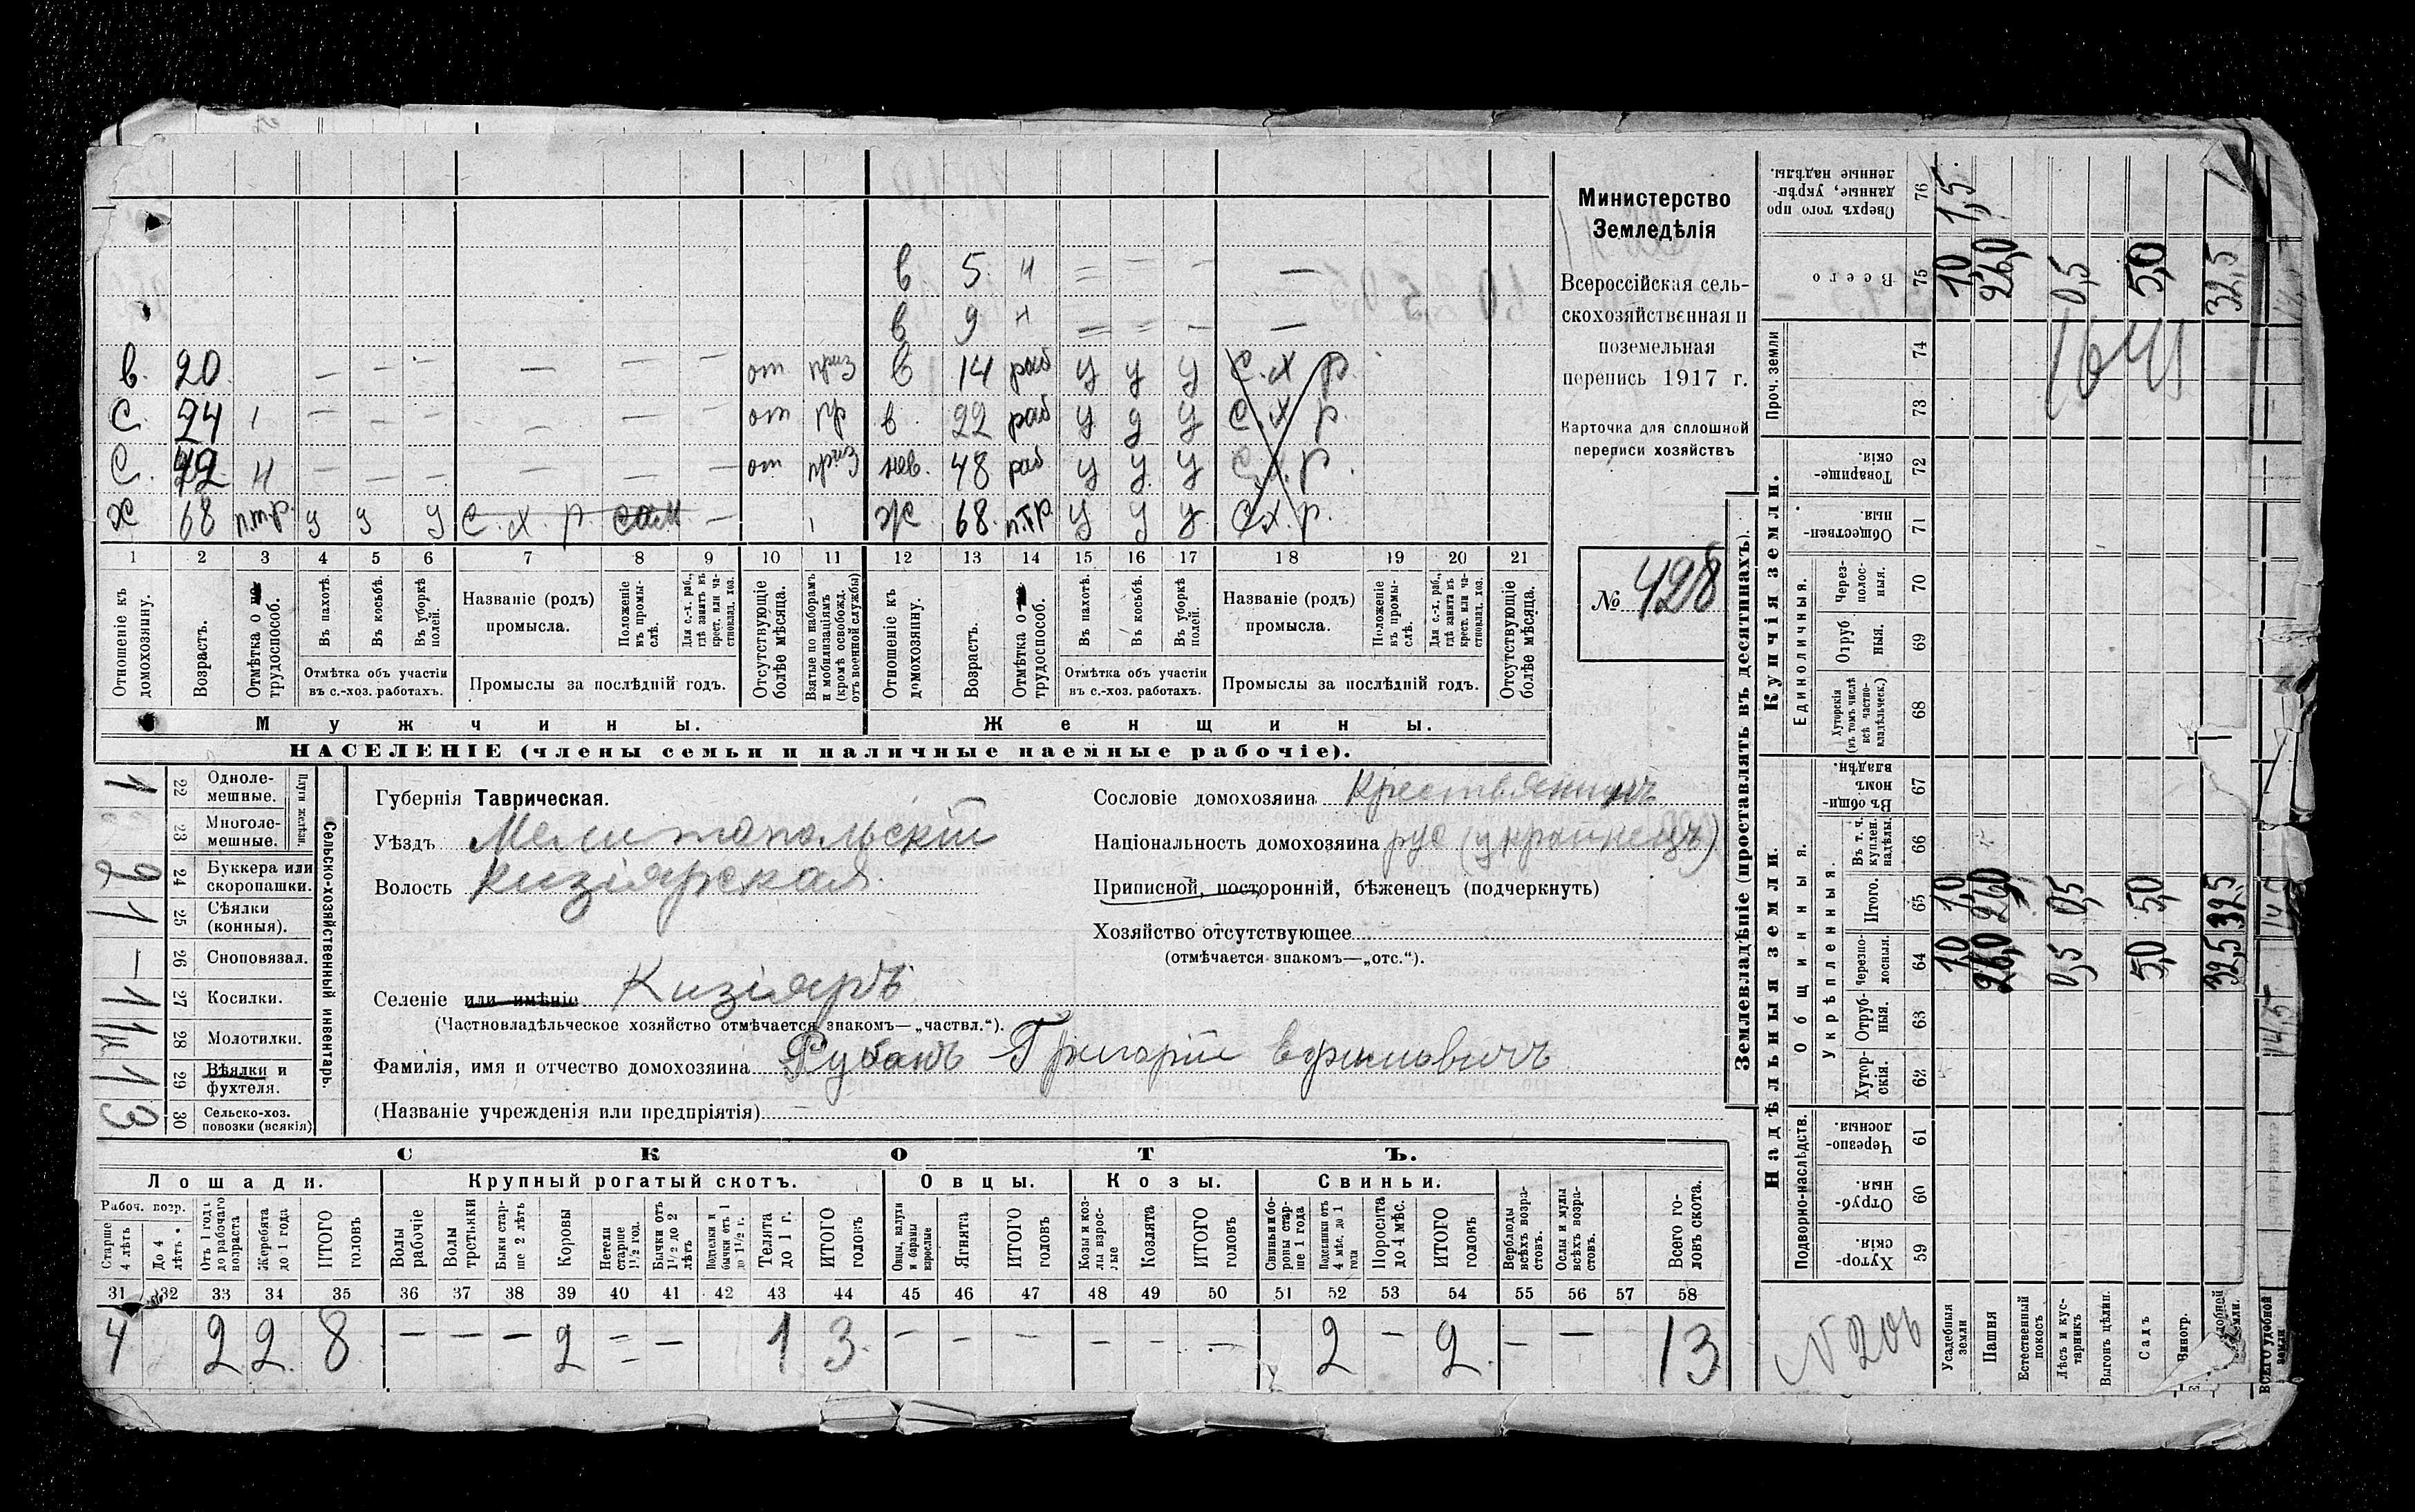 Министерство
Земледѣлія
Всероссійская сель-
скохозяйственная и
поземельная
перепись 1917 г.
Карточка для сплошной
переписи хозяйствъ
№ 428
в 5 н = = - —
в 9 н = = - —
в. 20 — — — — — — от приз в 14 раб у у у с. х р.
С. 24 — — — — — — от пр в. 22 раб у у у с. х р.
С. 42 н — — — — — — от приз нев. 48 раб у у у с. х. р.
х 68 п.т.р. у у у с. х. р. сам — ж 68. п.т.р. у у у с. х. р.
1 2 3 4 5 6 7 8 9 10 11 12 13 14 15 16 17 18 19 20 21
Отношеніе къ домохозяину.
Возрастъ.
Отмѣтка о трудоспособ.
Въ пахотѣ.
Въ косьбѣ.
Въ уборкѣ полей.
Отмѣтка объ участіи
въ с.-хоз. работахъ.
Названіе (родъ)
промысла.
Положеніе въ промы-слѣ.
Для с.-х. раб., гдѣ занятъ въ крест. или ча-стновлад. хоз.
Промыслы за послѣдній годъ.
Отсутствующіе болѣе мѣсяца.
Взятые по наборамъ и мобилизаціямъ (кромѣ освобожд. отъ военной службы)
Отношеніе къ домохозяину.
Возрастъ.
Отмѣтка о трудоспособ.
Въ пахотѣ.
Въ косьбѣ.
Въ уборкѣ полей.
Отмѣтка объ участіи
въ с.-хоз. работахъ.
Названіе (родъ)
промысла.
Положеніе въ промы-слѣ.
Для с.-х. раб., гдѣ занята въ крест. или ча-стновлад. хоз.
Промыслы за послѣдній годъ.
Отсутствующіе болѣе мѣсяца.
Мужчины. Женщины.
НАСЕЛЕНІЕ (члены семьи и наличные наемные рабочіе).
Сельско-хозяйственный инвентарь.
Плуги желѣзн.
1 22 Одноле-мешные.
23 Многоле-мешные.
2 24 Буккера или скоропашки.
1 25 Сѣялки (конныя).
— 26 Сноповязал.
1 27 Косилки.
28 Молотилки.
1 29 Вѣялки и фухтеля.
3 30 Сельско-хоз. повозки (всякія)
Губернія Таврическая.
Уѣздъ Мелитопольскій
Волость Кизіярская
Селеніе или имѣніе Кизіяръ
(Частновладѣльческое хозяйство отмѣчается знакомъ—„частвл.“).
Фамилія, имя и отчество домохозяина Рубанъ Григорій Ефимовичъ
(Названіе учрежденія или предпріятія)
Сословіе домохозяина Крестьянинъ
Національность домохозяина рус (украинецъ)
Приписной, посторонній, бѣженецъ (подчеркнуть)
Хозяйство отсутствующее
(отмѣчается знакомъ—„отс.“).
СКОТЪ.
Лошади. Крупный рогатый скотъ. Овцы. Козы. Свиньи.
Рабоч. возр.
Старше 4 лѣтъ
До 4 лѣтъ.
Отъ 1 года до рабочаго возраста
Жеребята до 1 года
ИТОГО головъ
Волы рабочіе
Волы третьяки
Быки стар-ше 2 лѣтъ
Коровы
Нетели старше 1½ год.
Бычки отъ 1½ до 2 лѣтъ
Подтелки и бычки отъ 1 до 1½ г.
Телята до 1 г.
ИТОГО головъ
Овцы, валухи и бараны взрослые
Ягнята
ИТОГО головъ
Козы и коз-лы взрос-лые
Козлята
ИТОГО головъ
Свиньи и бо-ровы стар-ше 1 года
Подсвинки отъ 4 мѣс. до 1 года
Поросята до 4 мѣс.
ИТОГО головъ
Верблюды всѣхъ возра-стовъ.
Ослы и мулы всѣхъ возра-стовъ.
Всего го-ловъ скота.
31 32 33 34 35 36 37 38 39 40 41 42 43 44 45 46 47 48 49 50 51 52 53 54 55 56 57 58
4 2 2 8 — — — 2 = — 1 3 — — — — — — 2 — 2 — — 13
Землевладѣніе (проставлять въ десятинахъ).
Купчія земли.
Надѣльныя земли.
Сверхъ того про данные, укрѣп-ленные надѣлы. 76 1,5.
Всего 75 1,0 26,0 0,5 5,0 32,5
Проч. земли 74 73
Товарище-скія. 72
Обществен-ныя 71
Единоличныя.
Через-полос-ныя. 70
Отруб ныя. 69
Хуторскія (въ томъ числѣ всѣ частно-владѣльческ.) 68
Общинныя.
Въ общин-номъ владѣн. 67
Укрѣпленныя.
Въ т. ч. куплен. надѣлы. 66
Итого. 65 1,0 26,0 0,5 5,0 32,5
Черезпо-лосныя. 64 1,0 26,0 0,5 5,0 32,5
Отруб-ныя. 63
Хутор-скія. 62
Подворно-наслѣдств.
Черезпо-лосныя. 61
Отруб-ныя. 60
Хутор-скія. 59
Усадебныя земли
Пашня
Естественный покосъ
Лѣсъ и кус-тарникъ
Выгонъ цѣлин.
Садъ
Виногр.
ВСЕГО удобной земли
14,5